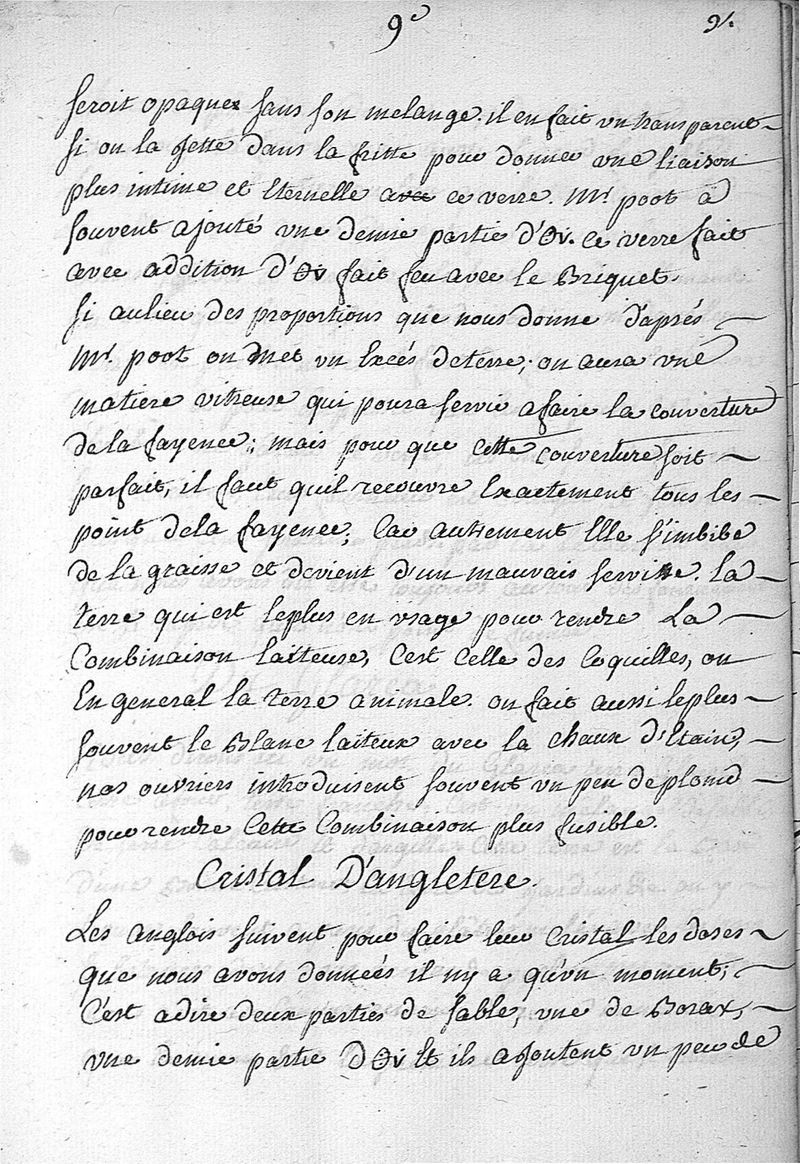 9e 9/.
seroit opaques sans son melange. il en fait un transparent
si on la jette dans la fritte pour donner une liaison
plus intime et Eternelle avec ce verre. Mr. poot a
souvent ajouté une demie partie d'Or. ce verre fait
avec addition d'Or fait feu avec le Briquet.
Si aulieu des proportions que nous donne d'aprés
Mr. poot on met un Excés deterre; on aura une
matiere vitreuse qui poura servir afaire la couverture
dela fayence; mais pour que cette couverture soit
parfait, il faut quil recouvre Exactement tous les
point dela fayence; Car autrement Elle s'imbibe
de la graisse et devient d'un mauvais service. la
terre qui est leplus en usage pour rendre La
Combinaison laiteuse, C'est Celle des Coquilles, ou
En general la terre animale. on fait aussi leplus
souvent le Blanc laiteux avec la chaux d'Etain,
nos ouvriers introduisent souvent un peu deplomb
pour rendre Cette Combinaison plus fusible.
Cristal D'angletere.
Les anglois suivent pour faire leur Cristal les doses
que nous avons donneés il ny a qu'un moment;
C'est adire deux parties de sable, une de Borax,
une demie partie d'Or Et ils ajoutent un peu de